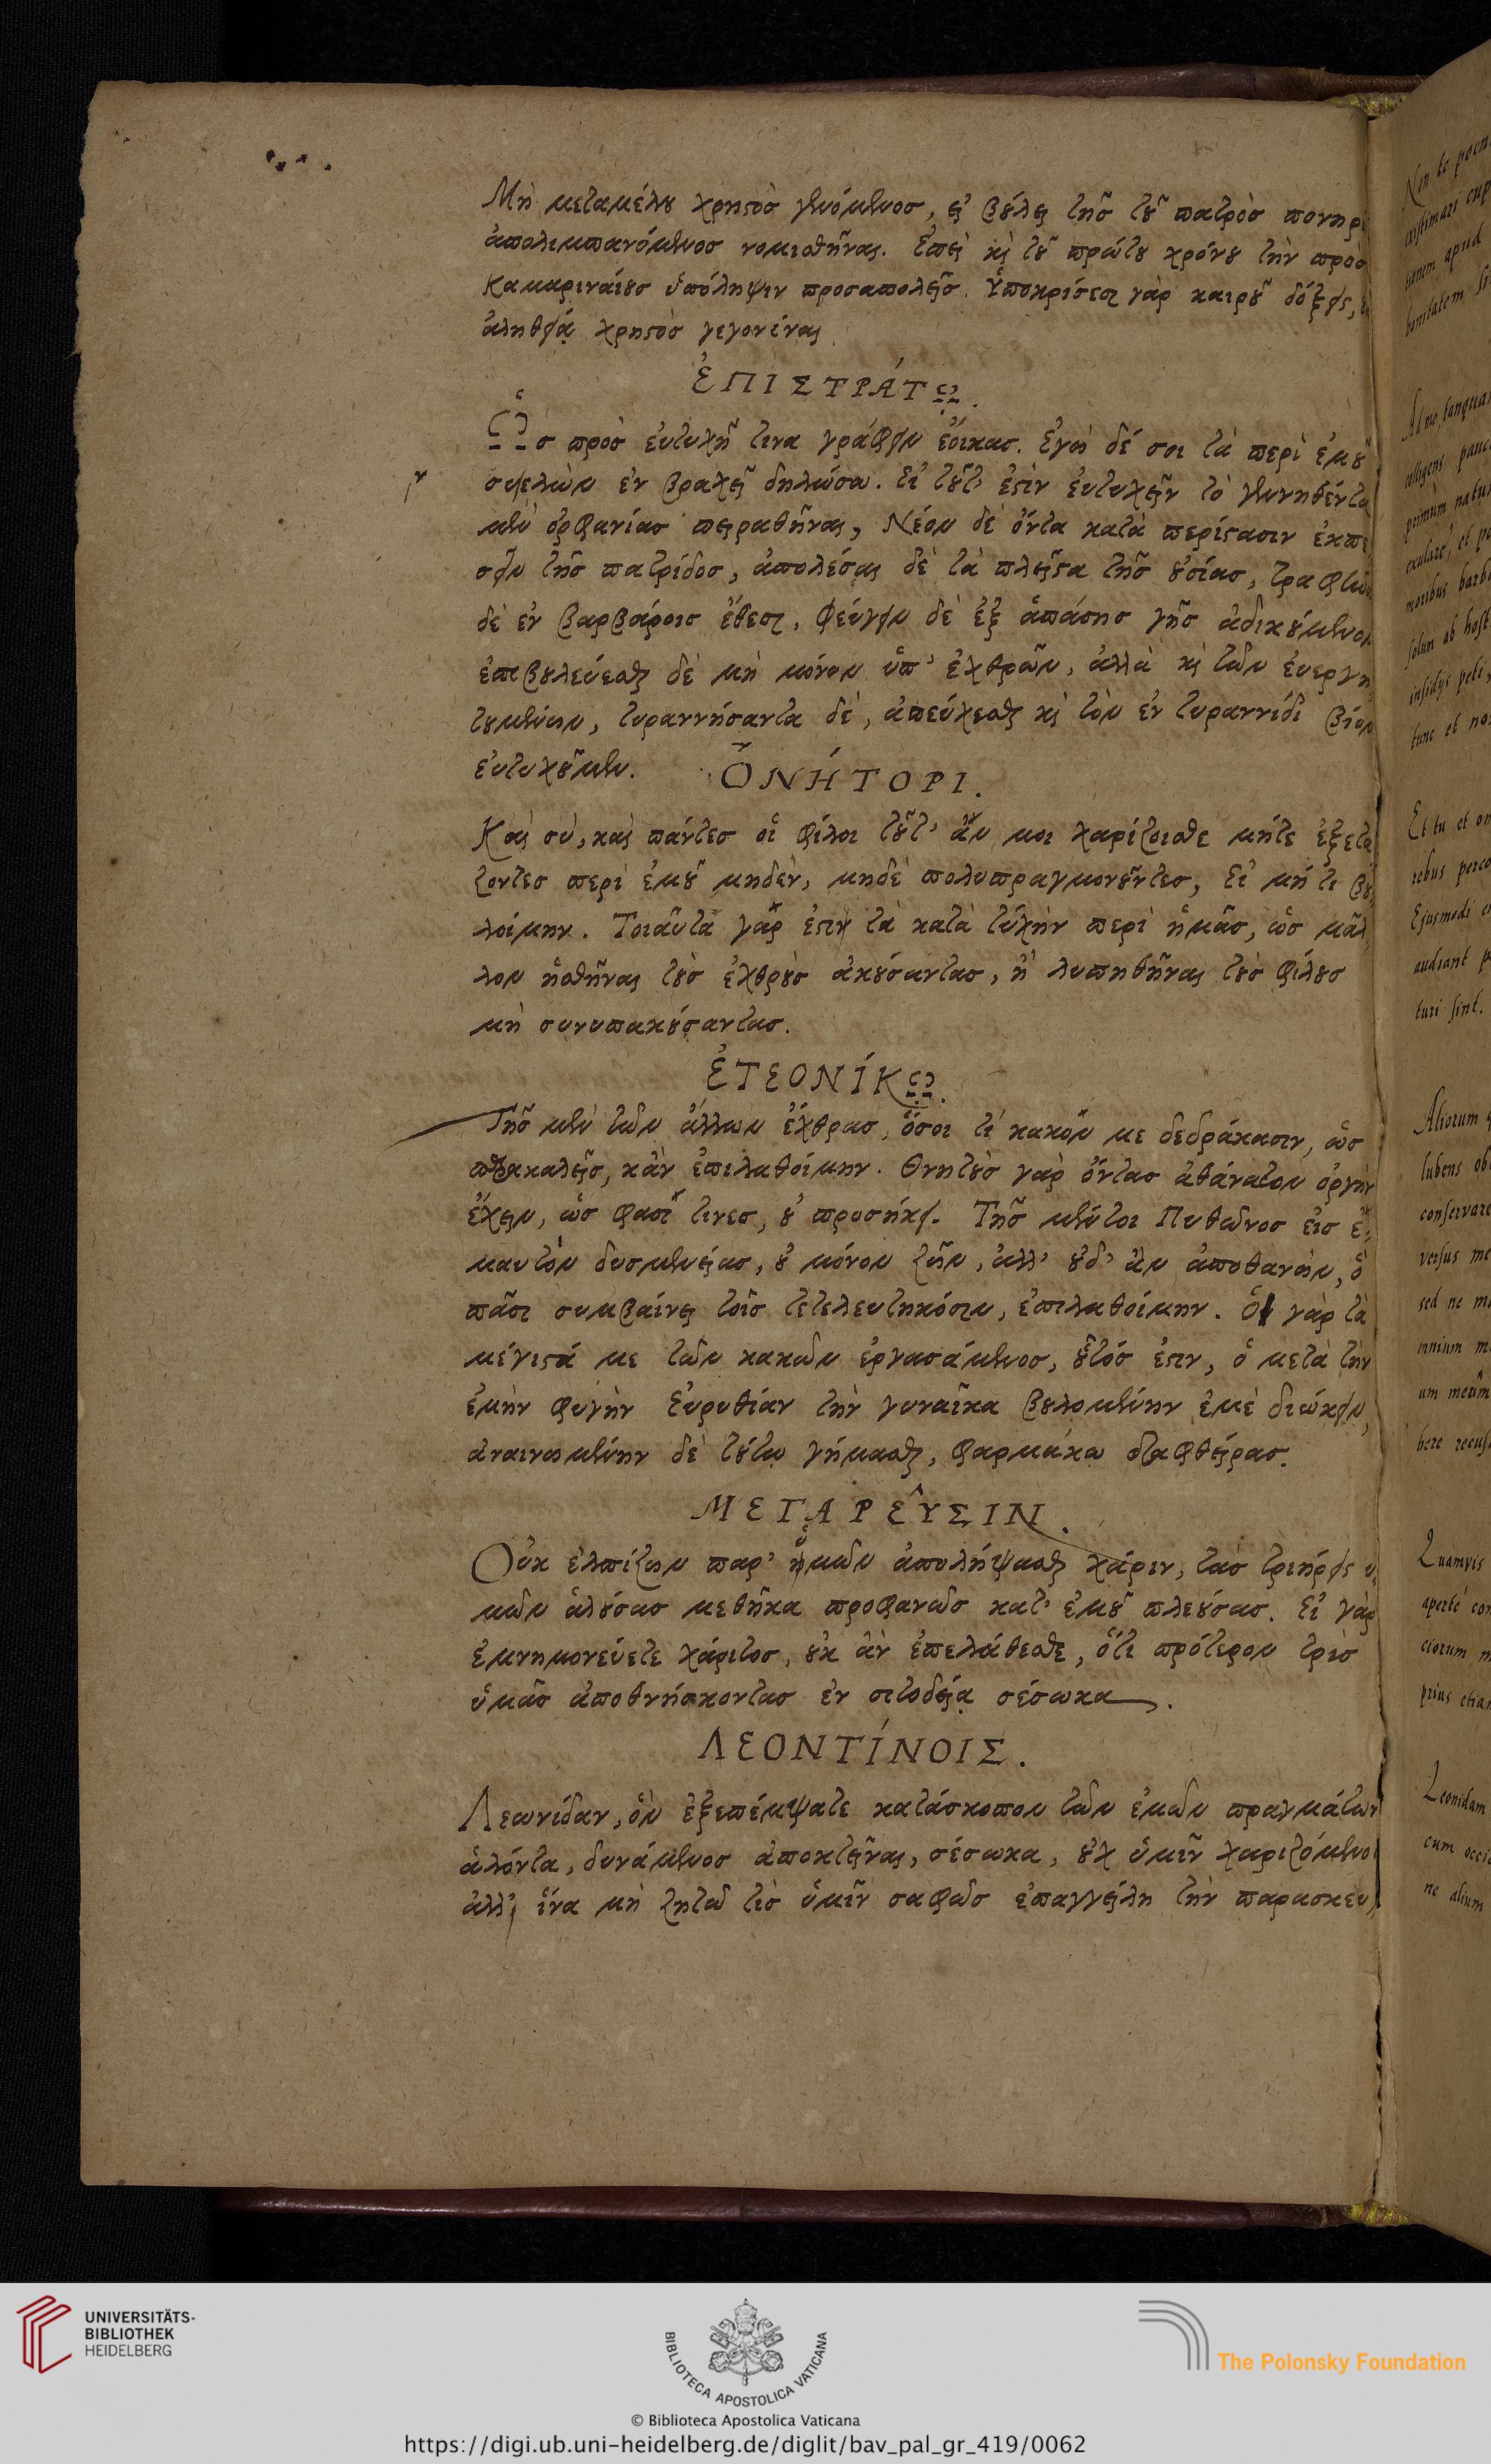 Μὴ μεταμέλου χρηστὸς γενόμενος, εἰ βούλει τῆς τοῦ πατρὸς πονηρί
ἀπολιμπανόμενος νομισθῆναι. Ἐπεὶ καὶ τοῦ πρώτου χρόνου τὴν πρὸς
Καμαριναίους ὑπόληψιν προσαπολεῖς. Ὑποκρίσεσι γὰρ καιροῦ δόξεις,
ἀληθείᾳ χρηστὸς γεγονέναι.
ἘΠΙΣΤΡΆΤΩ.
Ὡς πρὸς εὐτυχῆ τινα γράφειν ἔοικας. Ἐγὼ δέ σοι τὰ περὶ ἐμοῦ
συνελὼν ἐν βραχεῖ δηλώσω. Εἰ τοῦτ' ἐστὶν εὐτυχεῖν τὸ γεννηθέντα
μὲν ὀρφανίας πειραθῆναι, Νέον δὲ ὄντα κατὰ περίστασιν ἐκπε
σεῖν τῆς πατρίδος, ἀπολέσαι δὲ τὰ πλεῖστα τῆς οὐσίας, τραφῆναι
δὲ ἐν βαρβάροις ἔθεσι, φεύγειν δὲ ἐξ ἁπάσης γῆς ἀδικούμενον
ἐπιβουλεύεσθαι δὲ μὴ μόνον ὑπ' ἐχθρῶν, ἀλλὰ καὶ τῶν εὐεργε
τουμένων, τυραννήσαντα δὲ, ἀπεύχεσθαι καὶ τὸν ἐν τυραννίδι βίον
εὐτυχοῦμεν.
ὈΝΉΤΟΡΙ.
Καὶ σὺ, καὶ πάντες οἱ φίλοι τοῦτ' ἄν μοι χαρίζοισθε μήτε ἐξετά
ζοντες περὶ ἐμοῦ μηδὲν, μηδὲ πολυπραγμονοῦντες, Εἰ μή τι βου
λοίμην. Τοιαῦτα γάρ ἐστιν τὰ κατὰ τύχην περὶ ἡμᾶς, ὡς μᾶλ
λον ἡσθῆναι τοὺς ἐχθροὺς ἀκούσαντας, ἢ λυπηθῆναι τοὺς φίλους
μὴ συνυπακούσαντας.
ἘΤΕΟΝΊΚΩ.
Τῆς μὲν τῶν ἄλλων ἔχθρας, ὅσοι τί κακόν με δεδράκασιν, ὡς
παρακαλεῖς, κἂν ἐπιλαθοίμην. Θνητοὺς γὰρ ὄντας ἀθάνατον ὀργὴν
ἔχειν, ὥς φασί τινες, οὐ προσήκει. Τῆς μέντοι Πύθωνος εἰς ἐ-
μαυτὸν δυσμενείας, οὐ μόνον ζῶν, ἀλλ' οὐδ' ἂν ἀποθανὼν, ὃ
πᾶσι συμβαίνει τοῖς τετελευτηκόσιν, ἐπιλαθοίμην. Ὁ γὰρ τὰ
μέγιστά με τῶν κακῶν ἐργασάμενος, οὗτός ἐστιν, ὁ μετὰ τὴν
ἐμὴν φυγὴν Εὐρυθίαν τὴν γυναῖκα βουλομένην ἐμὲ διώκειν,
ἀναινομένην δὲ τούτῳ γήμασθαι, φαρμάκῳ διαφθείρας.
ΜΕΓΑΡΕΥ͂ΣΙΝ.
Οὐκ ἐλπίζων παρ' ὑμῶν ἀπολήψασθαι χάριν, τὰς τριήρεις ὑ-
μῶν ἁλούσας μεθῆκα προφανῶς κατ' ἐμοῦ πλεούσας. Εἰ γὰρ
ἐμνημονεύετε χάριτος, οὐκ ἂν ἐπελάθεσθε, ὅτι πρότερον τρὶς
ὑμᾶς ἀποθνήσκοντας ἐν σιτοδείᾳ σέσωκα.
ΛΕΟΝΤΊΝΟΙΣ.
Λεωνίδαν, ὃν ἐξεπέμψατε κατάσκοπον τῶν ἐμῶν πραγμάτων
ἁλόντα, δυνάμενος ἀποκτεῖναι, σέσωκα, οὐχ ὑμῖν χαριζόμενος
ἀλλ', ἵνα μὴ ζητῶ τὶς ὑμῖν σαφῶς ἐπαγγείλῃ τὴν παρασκευ
Non te poen
bonitatem si
At me, tanquam
colligens pauc
primùm natu
exulare, et p
moribus barba
solum ab host
insidijs peti,
tunc et no
Et tu et om
rebus perco
Ejusmodi e
audiant p
turi sint.
Aliorum
lubens ob
conservare
versus me
sed ne m
um metûm
here recus
Quamvis
apertè con
ciorum m
prius etia
Leonidam
cum occi
ne alium
UNIVERSITÄTS-
BIBLIOTHEK
HEIDELBERG
BIBLIOTECA APOSTOLICA VATICANA
The Polonsky Foundation
© Biblioteca Apostolica Vaticana
https://digi.ub.uni-heidelberg.de/diglit/bav_pal_gr_419/0062